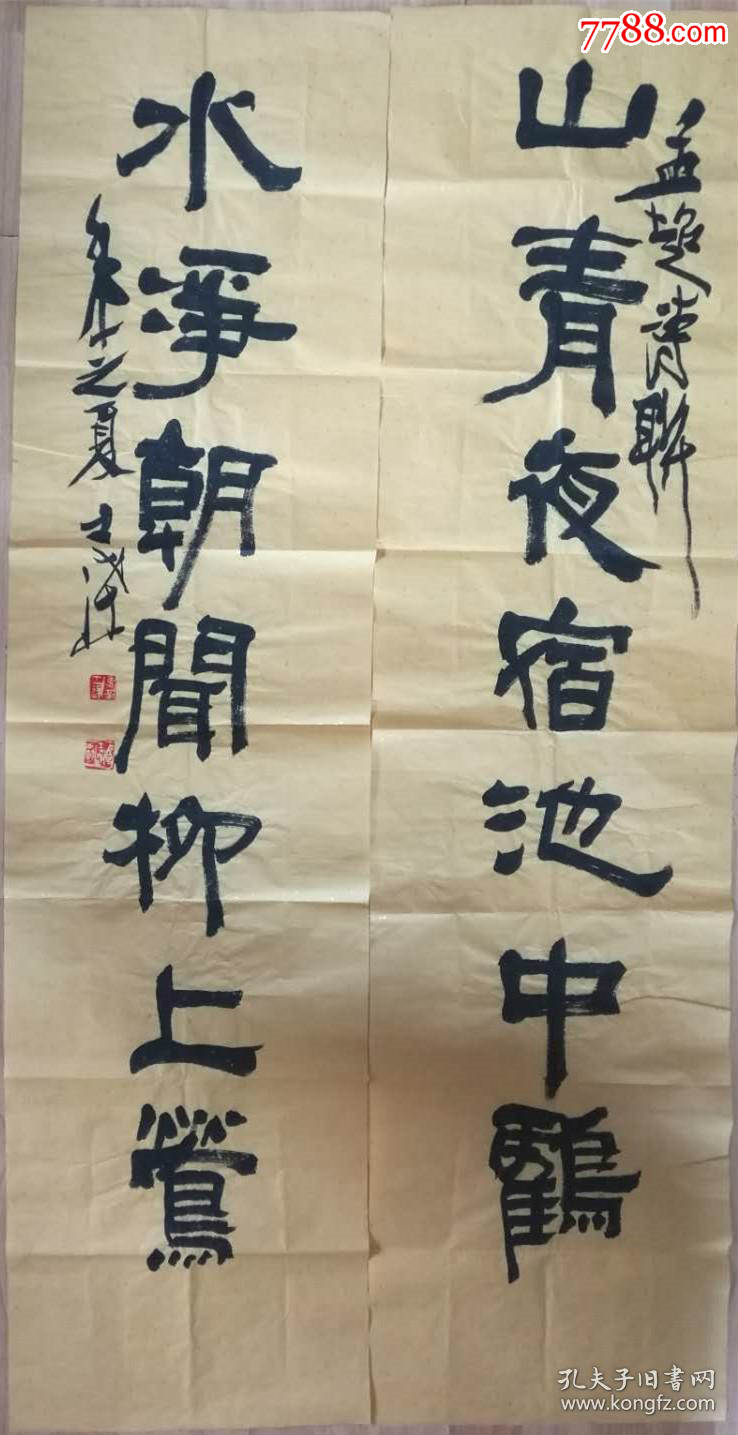 7788.com
孟超書联
山青夜宿池中鶴
水淨朝聞柳上鶯
之夏
孔夫子旧书网
www.kongfz.com